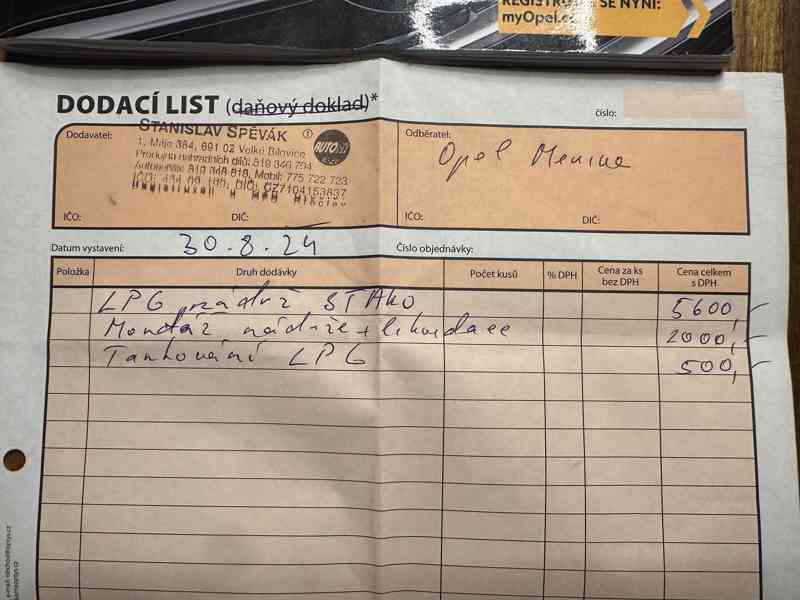 SE NYNÍ:
myOpel.c
DODACÍ LIST (daňový doklad)*
číslo:
Dodavatel:
STANISLAV SPĚVÁK
AUTO
1. Máje 384, 691 02 Velké Bílovice
Prodejna náhradních dílů: 519 346 794
Mobil: 775 722 723
IČO: DIČ: CZ7104153837
IČO: DIČ:
Odběratel:
Opel Meriva
IČO: DIČ:
Datum vystavení: 30.8.24 Číslo objednávky:
Položka Druh dodávky Počet kusů % DPH Cena za ks bez DPH Cena celkem s DPH
LPG nádrž STAKO 5600,-
Montáž nádrže + likvidace 2000,-
Tankování LPG 500,-
e-mail: obchod@optys.cz